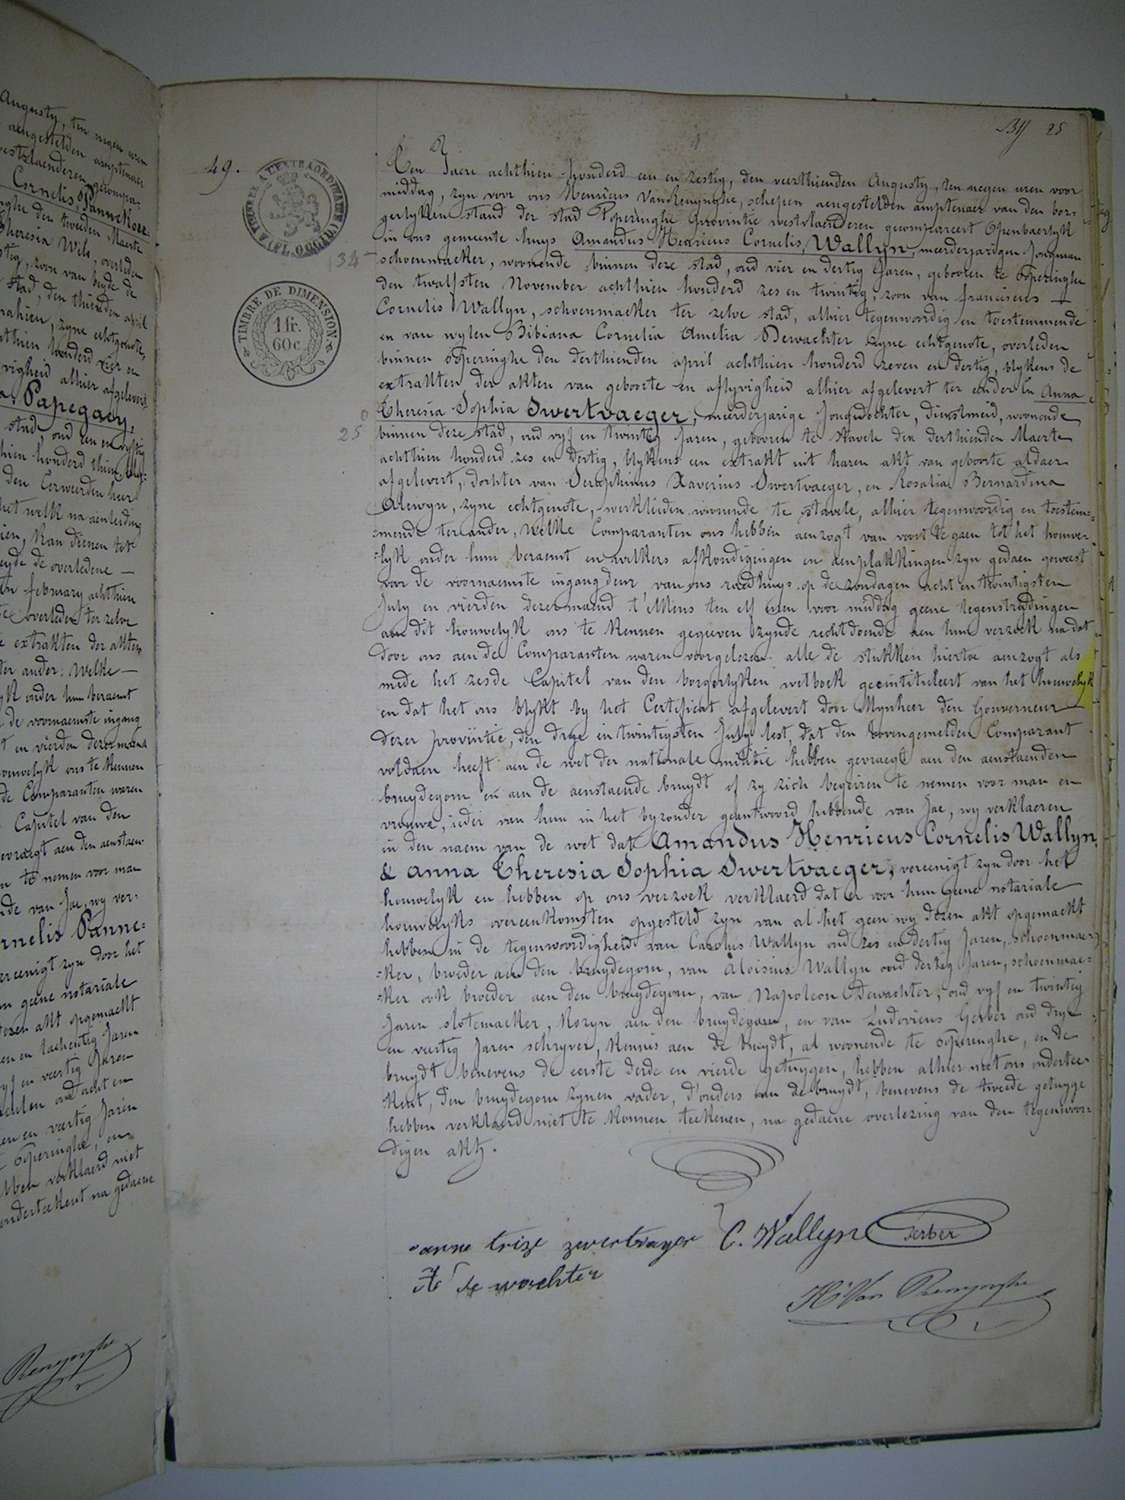 Augusty, ten negen uren
aengestelden amptenaer
westvlaenderen gecompa-
Cornelis Pannekoek
ringhe den tweeden Maerte
Theresia Wels, overleden
zoon van beyde de
stad, den thienden april
zyne echtgenote,
honderd vier en
vigheid alhier afgelevert
Papegaey,
stad, oud een en
honderd thien
den Eerweerden heer
het welk na aenleiding
Kan dienen tot
beyde de overledene
february achthien
overleden ter zelve
extrakten der akten
ter ander: Welke
lyk onder hun beraemt
de voornaemste ingang
en vierden dezer maend
houwelyk ons te kennen
de Comparanten waren
Capitel van den
gevraegt aen den aenstaen-
te nemen voor man
bende van Jae, wy ver-
Cornelis Panne-
vereenigt zyn door het
geene notariale
dezen akt opgemackt
en tachentig Jaren
vyf en veertig Jaren
oud acht en
en veertig Jaren
Poperinghe, en
hebben verklaerd niet
onderteekent na gedaene
Renynghe
25
49.
TIMBRE A L'EXTRAORDINAIRE
34
TIMBRE DE DIMENSION
1 fr.
60 c
25
Een Jaere achthien honderd een en zestig, den veerthienden Augusty, ten negen uren voor
middag, zyn voor ons Henricus VanRenynghe, schepen aengestelden amptenaer van den bor-
gerlyken stand der stad Poperinghe provintie westvlaenderen gecompareert openbaerlyk
in ons gemeente huys Amandus Henricus Cornelis Wallyn, meerderjarigen Jongman
schoenmaeker, woonende binnen deze stad, oud vier en dertig Jaren, gebooren te Poperinghe
den twalfsten November achthien honderd zes en twintig, zoon van franciscus
Cornelis Wallyn, schoenmaeker ter zelve stad, alhier tegenwoordig en toestemmende
en van wylen Bibiana Cornelia Amelia Dewachter zyne echtgenote, overleden
binnen Poperinghe den derthienden april achthien honderd zeven en dertig, blykens de
extrakten der akten van geboorte en aflyvigheid alhier afgelevert ter eender En Anna
Theresia Sophia Swertvaeger, meerderjarige Jongedochter, dienstmeid, woonende
binnen deze stad, oud vyf en twintig Jaren, gebooren te Stavele den derthienden Maerte
achthien honderd zes en dertig, blykens een extrakt uit haren akt van geboorte aldaer
afgelevert, dochter van Seraphinus Xaverius Swertvaeger, en Rosalia Bernardina
Alewyn, zyne echtgenote, werklieden woonende te Stavele, alhier tegenwoordig en toestem-
mende ter ander, Welke Comparanten ons hebben aenzogt van voort te gaen tot het houwe-
lyk onder hun beraemt en welkers afkondigingen en aenplakkingen zyn gedaen geweest
voor de voornaemste ingang deur van ons raedhuys op de zondagen acht en twintigsten
July en vierden dezer maend t'elkens ten elf uren voor middag geene tegenstrydingen
aen dit houwelyk ons te kennen gegeven zynde rechtdoende aen hun verzoek na dat
door ons aen de Comparanten waren voorgelezen alle de stukken hiertoe aenzogt als
mede het zesde Capitel van den borgerlyken wetboek geëntituleert van het houwelyk
en dat het ons blykt by het Certificat afgelevert door Mynheer den Gouverneur
dezer provintie, den drye en twintigsten July lest, dat den bovengemelden Comparant
voldaen heeft aen de wet der nationale militie hebben gevraegt aen den aenstaenden
bruydegom en aen de aenstaende bruydt of zy zich begeiren te nemen voor man en
vrouwe, ieder van hun in het byzonder geantwoord hebbende van Jae, wy verklaeren
in den naem van de wet dat Amandus Henricus Cornelis Wallyn
& anna Theresia Sophia Swertvaeger, vereenigt zyn door het
houwelyk en hebben op ons verzoek verklaerd dat er voor hun geene notariale
houwelyks overeenkomsten opgesteld zyn van al het geen wy dezen akt opgemackt
hebben in de tegenwoordigheid van Carolus Wallyn oud zes en dertig Jaren, schoenmae-
ker, broeder aen den bruydegom, van Aloisius Wallyn oud dertig Jaren, schoenmae-
ker ook broeder aen den bruydegom, van Napoleon Dewachter, oud vyf en twintig
Jaren slotemaeker, Kozyn aen den bruydegom, en van Ludovicus Gerber oud drye
en veertig Jaren schryver, Kennis aen de bruydt, al woonende te Poperinghe, en de
bruydt benevens de eerste derde en vierde getuygen, hebben alhier met ons onderteer-
kent, den bruydegom zynen vader, d'ouders van de bruydt, benevens de tweede getuyge
hebben verklaerd niet te konnen teekenen, na gedaene overlezing van den tegenwoor-
digen akt.
anne trize zwertvager C. Wallyn Gerber
de wachter
H. Van Renynghe